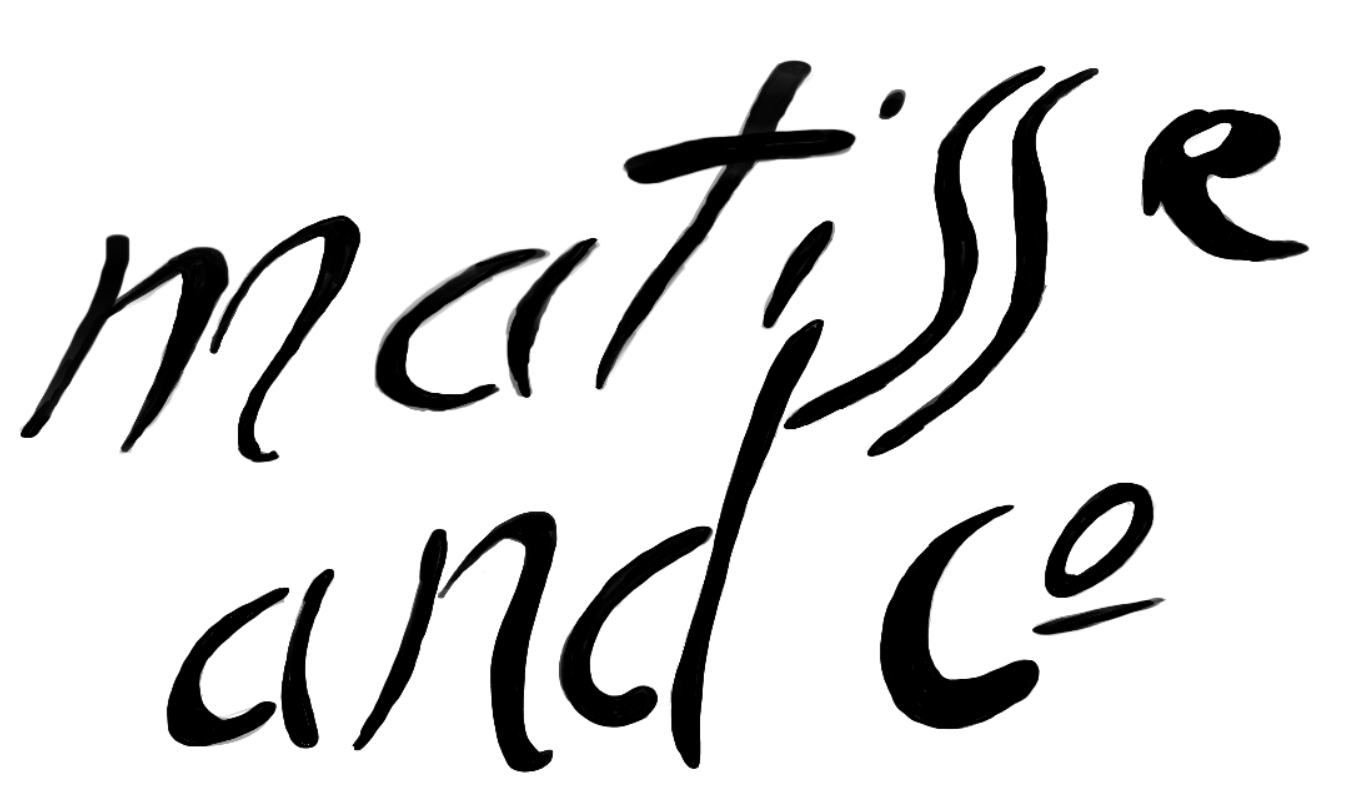 matisse
and cº